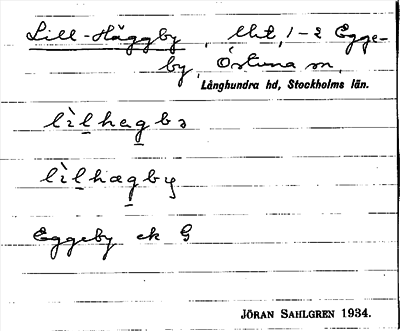 Lill-Häggby, lht, 1-2 Egge-
by, Östuna sn,
Långhundra hd, Stockholms län.
lìlhagbɜ
lìlhagby
Eggeby ek G
JÖRAN SAHLGREN 1934.